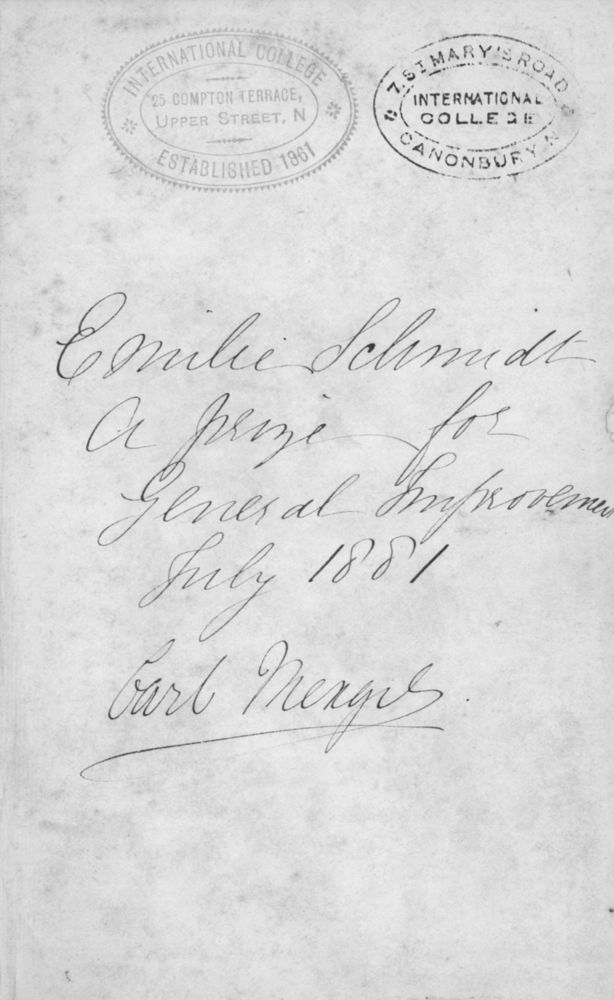 INTERNATIONAL COLLEGE
25 COMPTON TERRACE,
UPPER STREET, N
ESTABLISHED 1861
7. ST MARY'S ROAD
INTERNATIONAL
COLLEGE
CANONBURY N
Emilie Schmidt
A prize for
General Improvemen
July 1881
Carl Mengel